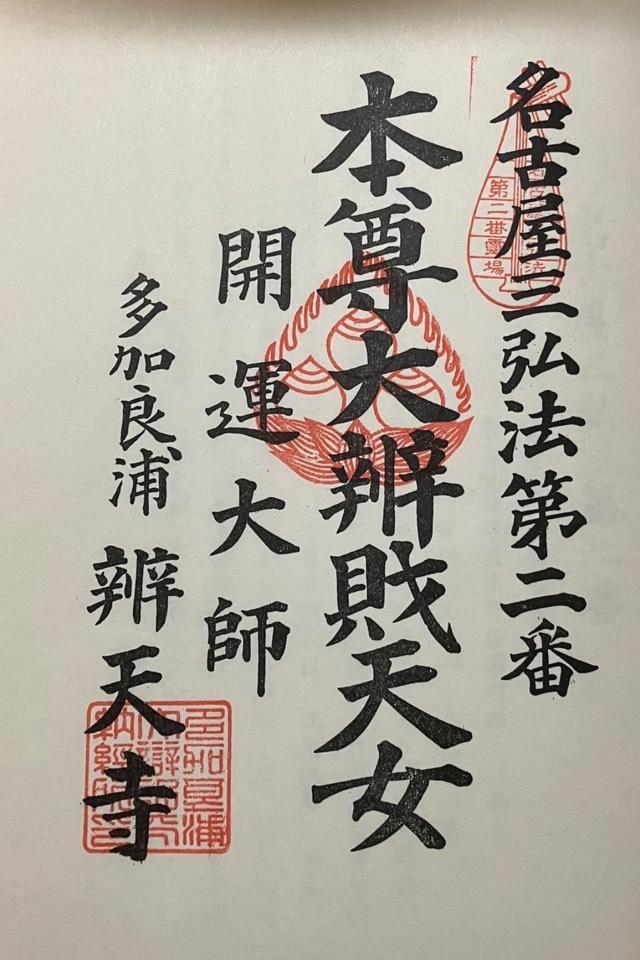 名古屋三弘法第二番
第二番霊場
本尊大辨財天女
開運大師
多加良浦 辨天寺